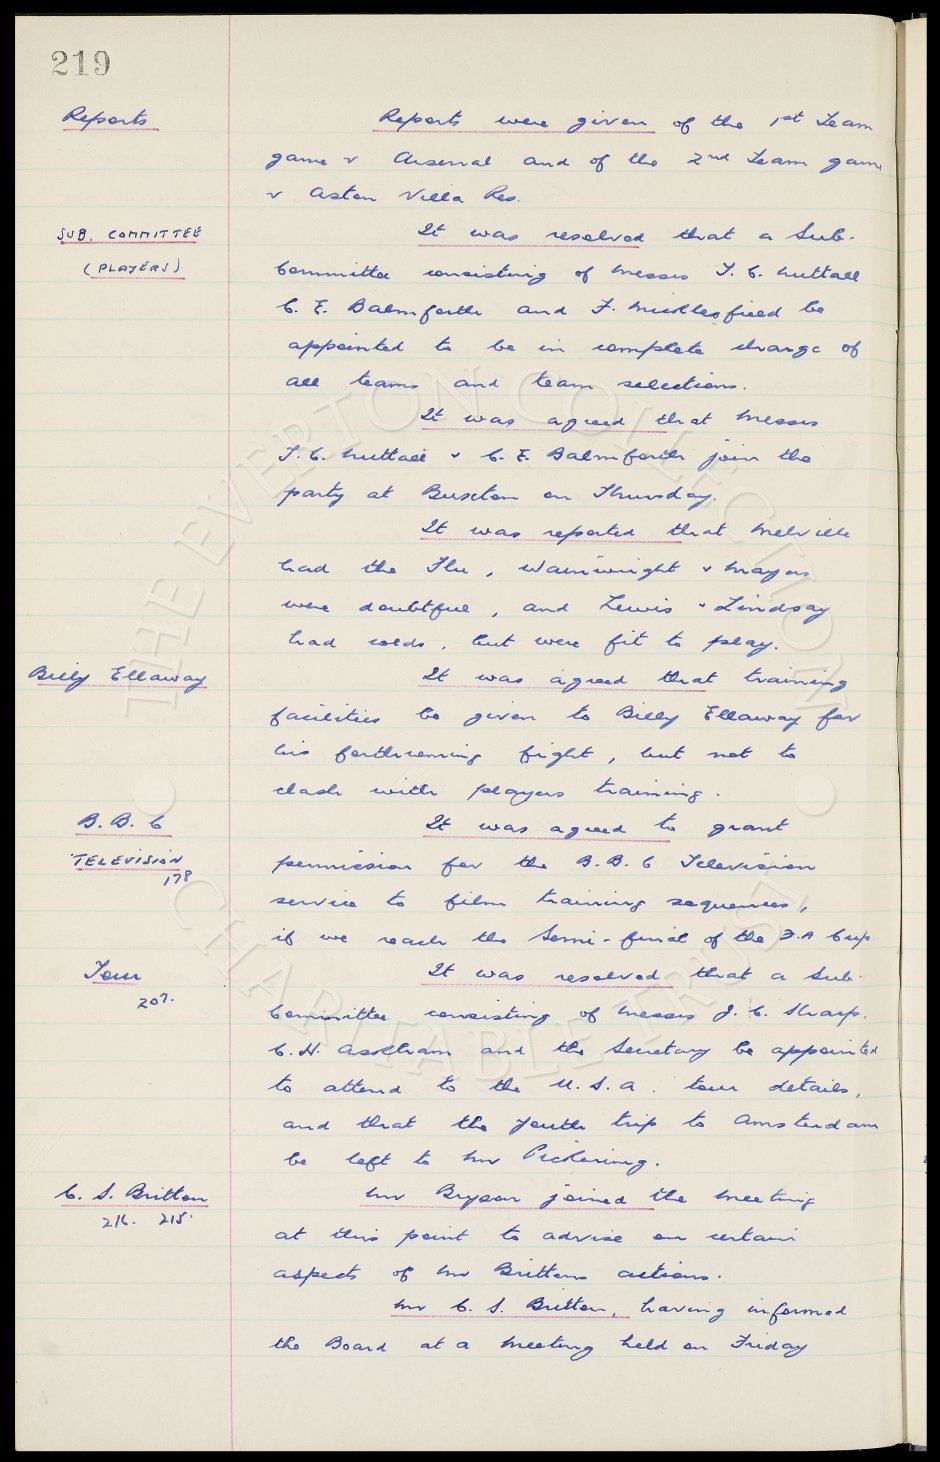 219
Reports
Reports were given of the 1st Team
game v Arsenal and of the 2nd Team game
v Aston Villa Res.
SUB. COMMITTEE
(PLAYERS)
It was resolved that a Sub-
Committee consisting of Messrs T. C. Nuttall
C. E. Balmforth and F. Micklesfield be
appointed to be in complete charge of
all teams and team selections.
It was agreed that Messrs
T. C. Nuttall & C. E. Balmforth join the
party at Buxton on Thursday.
It was reported that Melville
had the Flu, Wainwright & Mayers
were doubtful, and Lewis & Lindsay
had colds, but were fit to play.
Billy Ellaway
It was agreed that training
facilities be given to Billy Ellaway for
his forthcoming fight, but not to
clash with players training.
B. B. C
TELEVISION
178
It was agreed to grant
permission for the B. B. C Television
service to film training sequences,
if we reach the Semi-final of the F.A Cup
Tour
207.
It was resolved that a Sub-
Committee consisting of Messrs J. C. Sharp,
C. H. Askham and the Secretary be appointed
to attend to the U. S. A. tour details,
and that the Youth trip to Amsterdam
be left to Mr Pickering.
C. S. Britton
216. 215.
Mr Bryson joined the Meeting
at this point to advise on certain
aspects of Mr Brittons actions.
Mr C. S. Britton, having informed
the Board at a Meeting held on Friday
THE EVERTON COLLECTION
CHARITABLE TRUST